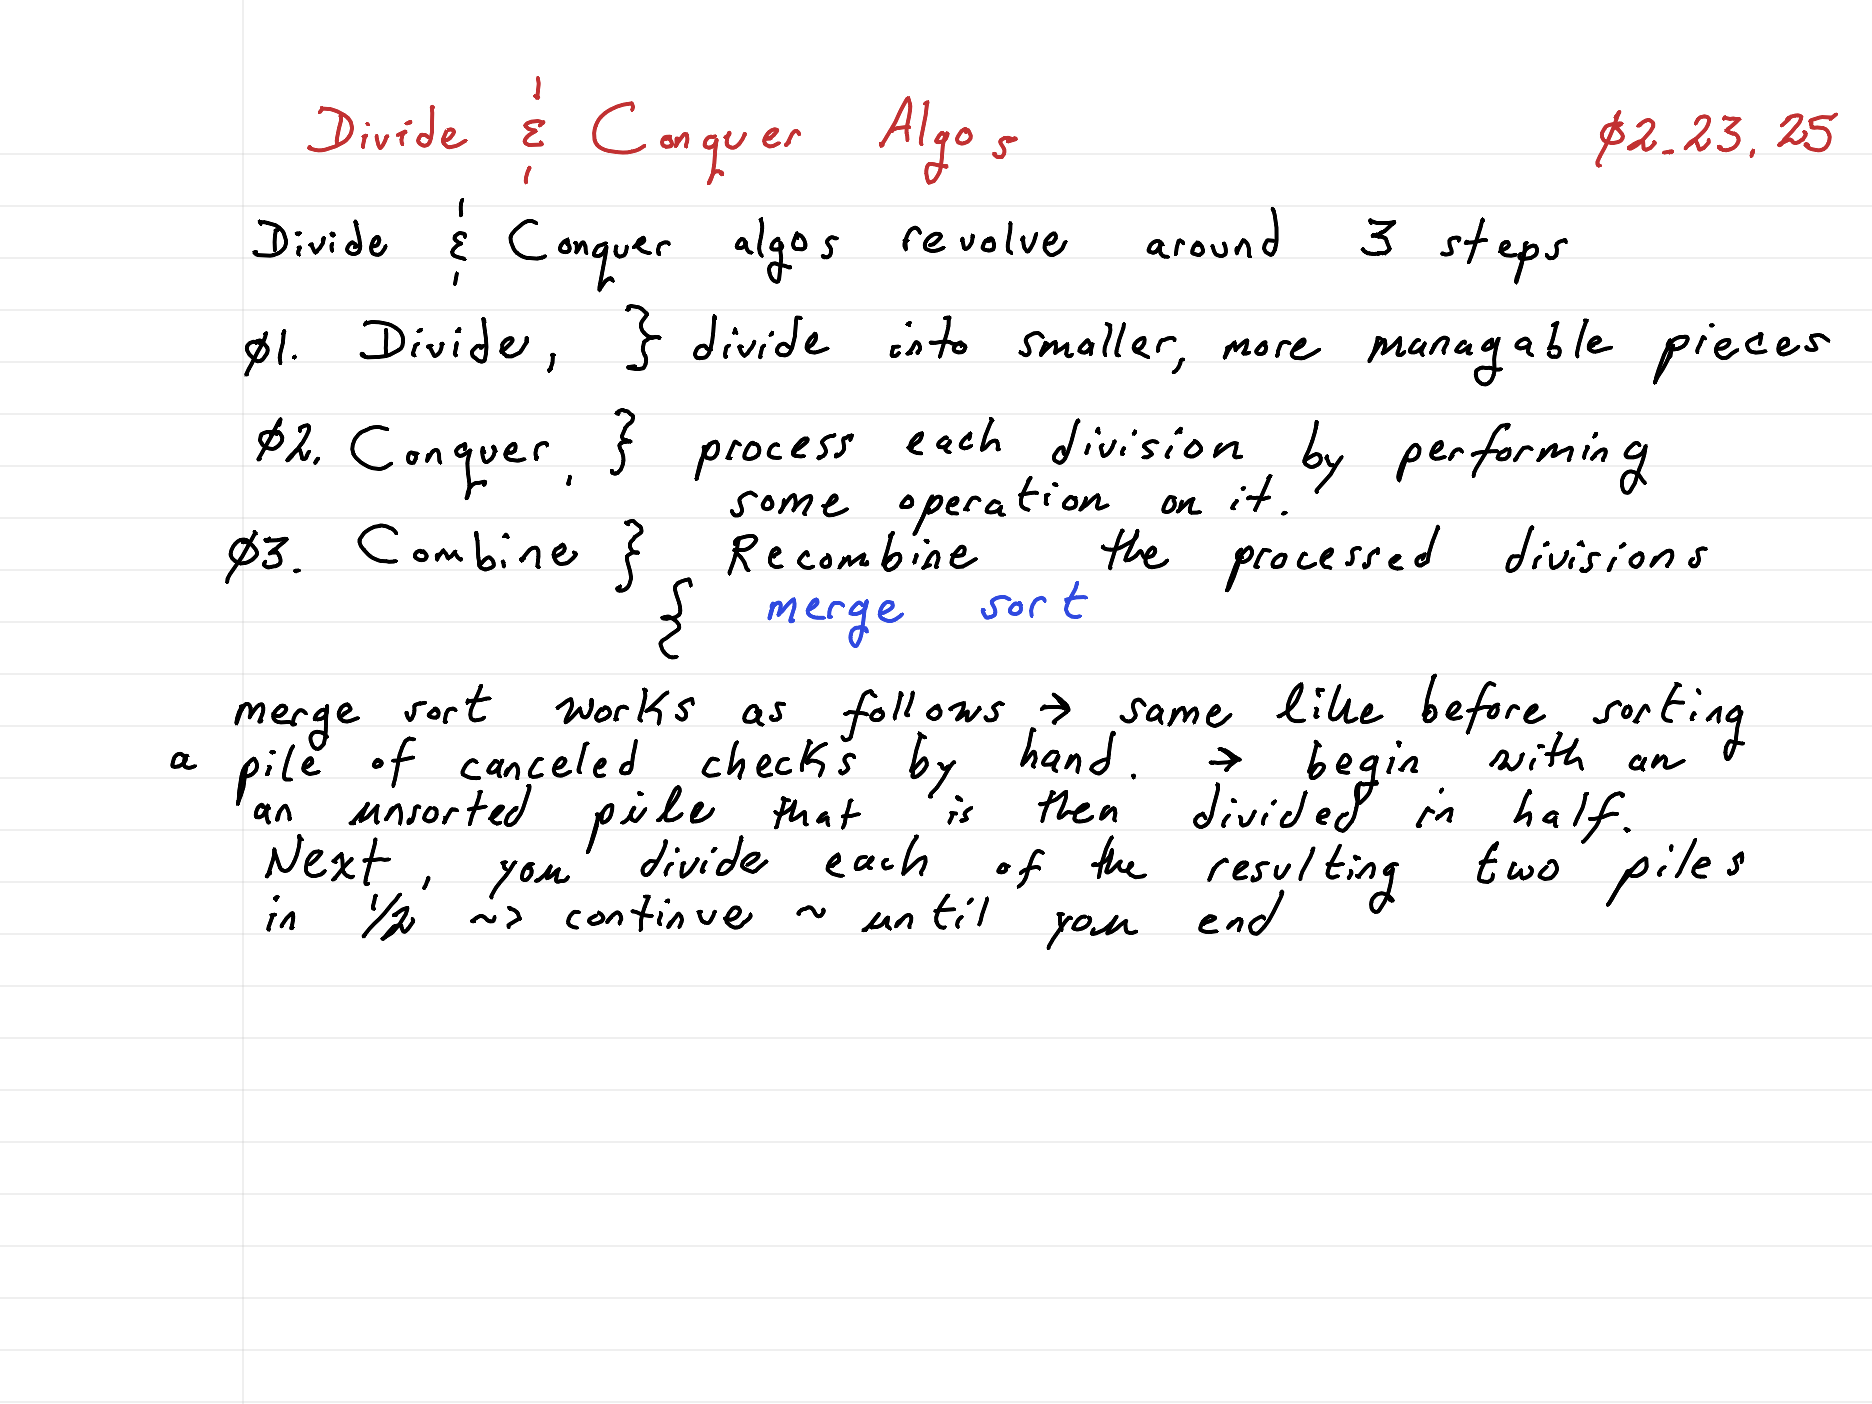 Divide & Conquer Algos 02.23.25
Divide & Conquer algos revolve around 3 steps
01. Divide, } divide into smaller, more managable pieces
02. Conquer, } process each division by performing
some operation on it.
03. Combine } Recombine the processed divisions
{ merge sort
merge sort works as follows → same like before sorting
a pile of canceled checks by hand. → begin with an
an unsorted pile that is then divided in half.
Next, you divide each of the resulting two piles
in 1/2 ~> continue ~ until you end